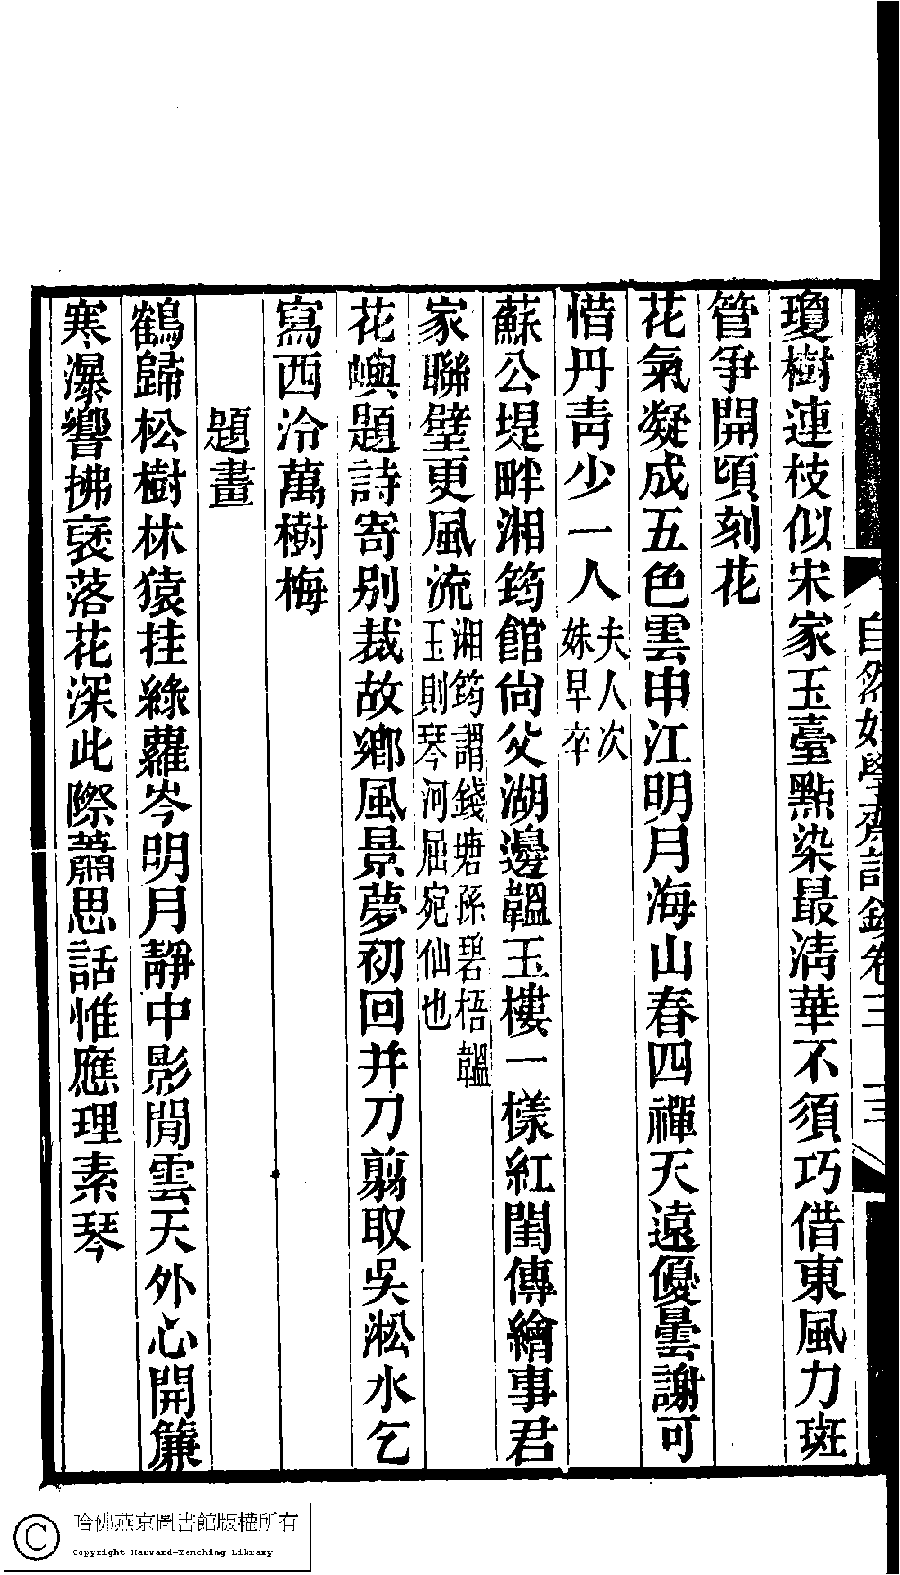 自然好學齋詩鈔卷三 十三
瓊樹連枝似宋家玉臺點染最淸華不須巧借東風力斑
管爭開頃刻花
花氣凝成五色雲申江明月海山春四禪天遠優曇謝可
惜丹靑少一人夫人次妹早卒
蘇公堤畔湘筠館尙父湖邊韞玉樓一樣紅閨傳繪事君
家聯璧更風流湘筠謂錢塘孫碧梧韞玉則琴河屈宛仙也
花嶼題詩寄別裁故鄉風景夢初回并刀翦取吳淞水乞
寫西泠萬樹梅
題畫
鶴歸松樹林猿挂綠蘿岑明月靜中影閒雲天外心開簾
寒瀑響拂袖落花深此際蕭思話惟應理素琴
哈佛燕京圖書館版權所有
Copyright Harvard-Yenching Library